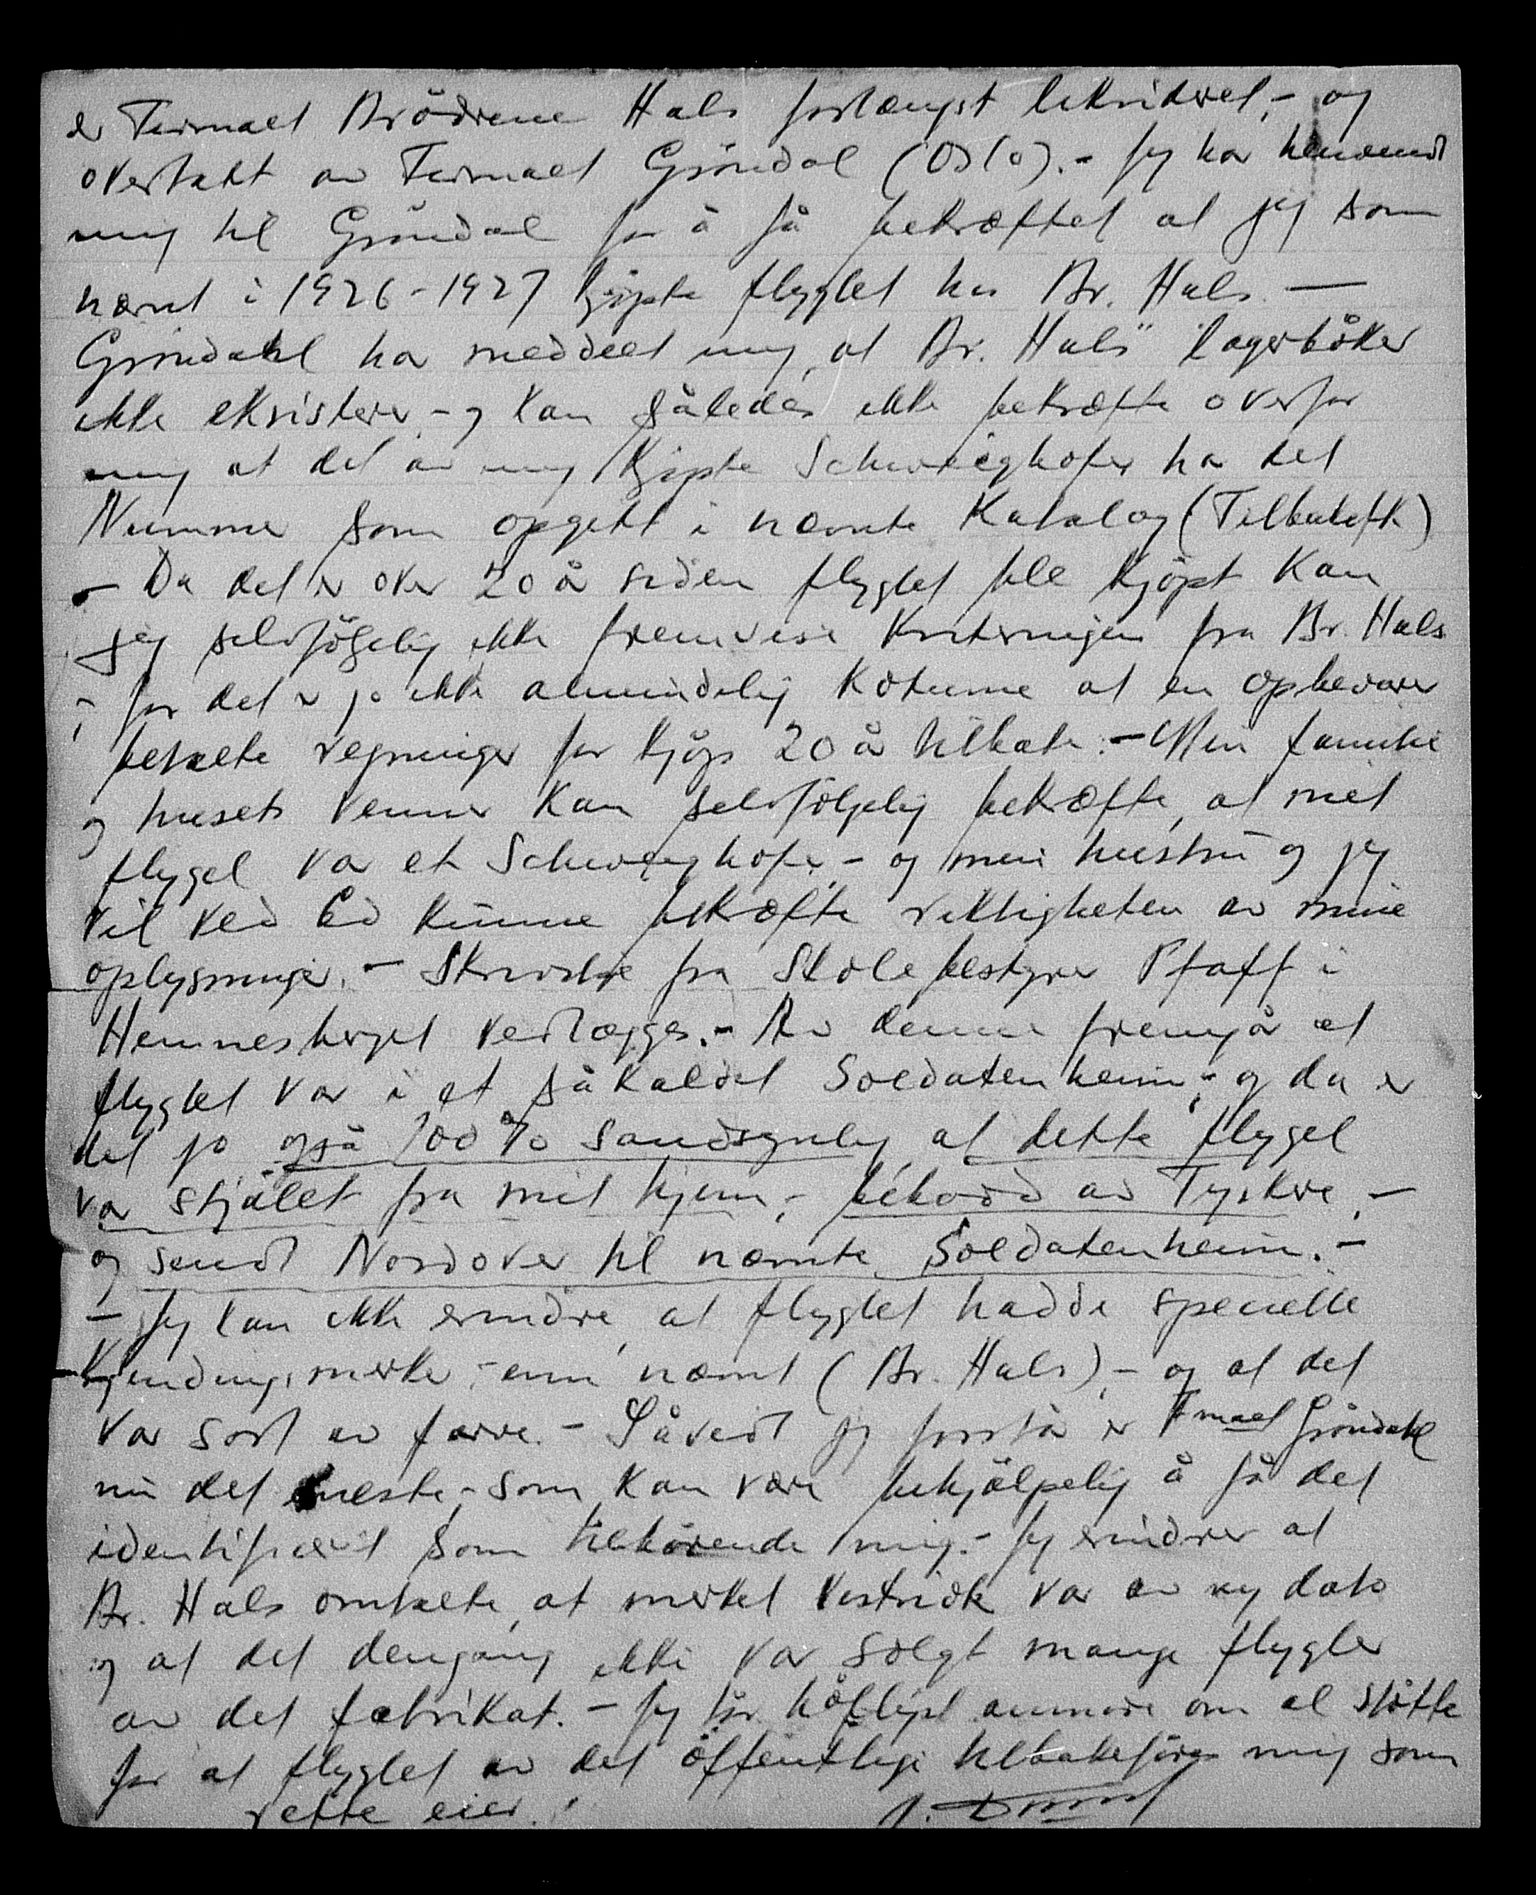 er Firmaet Brödrene Hals forlængst likvidret, - og
overtatt av Firmaet Gröndal (Oslo). - Jeg har henvendt
mig til Gröndal for å få bekræftet at jeg som
nævnt i 1926-1927 kjøpte flyglet hos Br. Hals. —
Gröndahl har meddelt mig, at Br. Hals" lagerbøker
ikke eksisterer, - og kan således ikke bekræfte overfor
mig at det av mig kjøpte Schweighofer har det
Nummer som opgitt i nævnte Katalog (Tilbakeft.)
- Da det er over 20 år siden flyglet ble kjøpt kan
jeg selvfölgelig ikke fremvise kvitteringen fra Br. Hals
- for det er jo ikke almindelig kotume at en opbevarer
betalte regninger for kjøp 20 år tilbake. - Min familie
og husets venner kan selvfölgelig bekræfte, at mit
flygel var et Schweighofer, - og min hustru og jeg
vil ved Ed kunne bekræfte riktigheten av mine
oplysninger. - Skrivelse fra Skolebestyrer Pfaff i
Hemnesberget vedlægges. - Av denne fremgår at
flyglet var i et såkaldet Soldatenheim, - og da er
det jo også 100% sandsynlig at dette flygel
var stjålet fra mit hjem, - bebodd av Tyskere, -
og sendt Nordover til nævnte Soldatenheim. -
- Jeg kan ikke erindre, at flyglet hadde specielle
Kjendingsmerke, - enn nævnt (Br. Hals), - og at det
var sort av farve. - Såvidt jeg forstår er Fmaet Gröndahl
nu det eneste, - som kan være behjälpelig å få det
identifisert som tilhørende mig. - Jeg erindrer at
Br. Hals omtalte, at merket var av ny dato
og at det dengang ikke var solgt mange flygler
av det fabrikat. - Jeg tør höfligst anmode om al støtte
for at flyglet av det öffentlige tilbakeføres mig som
rette eier.